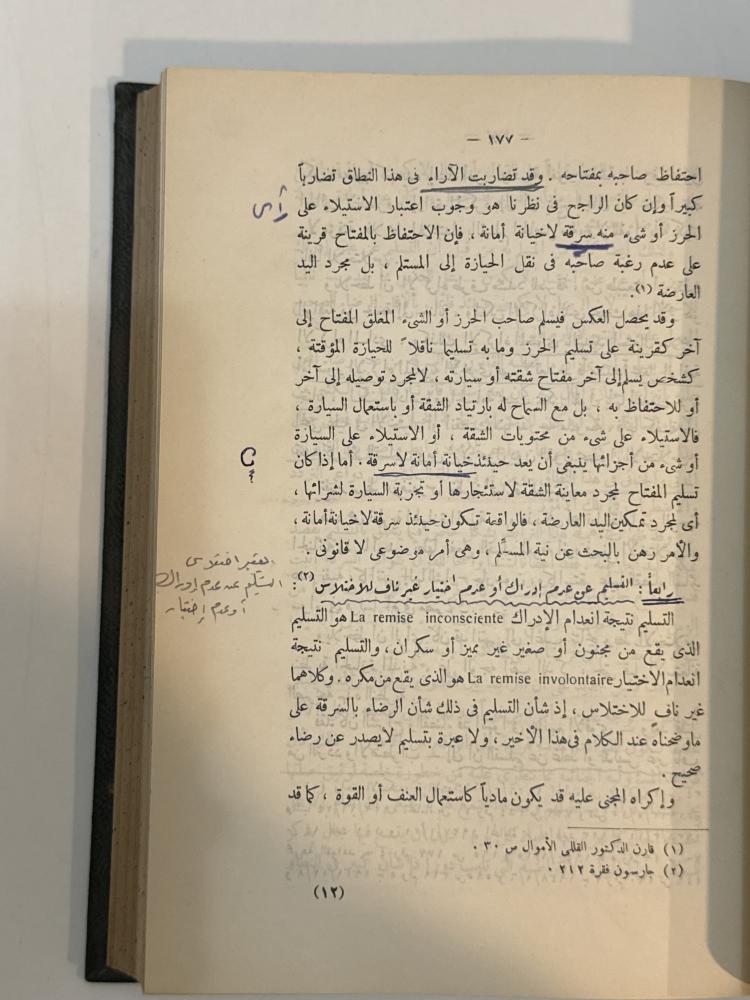 — ١٧٧ —
احتفاظ صاحبه بمفتاحه . وقد تضاربت الآراء فى هذا النطاق تضارباً
كبيراً وإن كان الراجح فى نظرنا هو وجوب اعتبار الاستيلاء على
رأى
الحرز أو شىء منه سرقة لا خيانة أمانة ، فإن الاحتفاظ بالمفتاح قرينة
على عدم رغبة صاحبه فى نقل الحيازة إلى المستلم ، بل مجرد اليد
العارضة (١).
وقد يحصل العكس فيسلم صاحب الحرز أو الشىء المغلق المفتاح إلى
آخر كقرينة على تسليم الحرز وما به تسليما ناقلاً للحيازة المؤقتة ،
كشخص يسلم إلى آخر مفتاح شقته أو سيارته ، لا لمجرد توصيله إلى آخر
أو للاحتفاظ به ، بل مع السماح له بارتياد الشقة أو باستعمال السيارة ،
فالاستيلاء على شىء من محتويات الشقة ، أو الاستيلاء على السيارة
أو شىء من أجزائها ينبغى أن يعد حينئذ خيانة أمانة لا سرقة . أما إذا كان
تسليم المفتاح لمجرد معاينة الشقة لاستئجارها أو تجربة السيارة لشرائها ،
أى لمجرد تمكين اليد العارضة ، فالواقعة تكون حينئذ سرقة لا خيانة أمانة ،
والأمر رهن بالبحث عن نية المسلِّم ، وهى أمر موضوعى لا قانونى .
رابعاً : التسليم عن عدم إدراك أو عدم اختيار غير ناف للاختلاس (٢):
التسليم عند عدم إدراك
أو عدم إختيار
التسليم نتيجة انعدام الإدراك La remise inconsciente هو التسليم
الذى يقع من مجنون أو صغير غير مميز أو سكران ، والتسليم نتيجة
انعدام الاختيار La remise involontaire هو الذى يقع من مكره . وكلاهما
غير نافٍ للاختلاس ، إذ شأن التسليم فى ذلك شأن الرضاء بالسرقة على
ما وضحناه عند الكلام فى هذا الأخير ، ولا عبرة بتسليم لا يصدر عن رضاء
صحيح .
وإكراه المجنى عليه قد يكون مادياً كاستعمال العنف أو القوة ، كما قد
(١) قارن الدكتور القللى الأموال ص ٣٠ .
(٢) جارسون فقرة ٢١٢ .
(١٢)